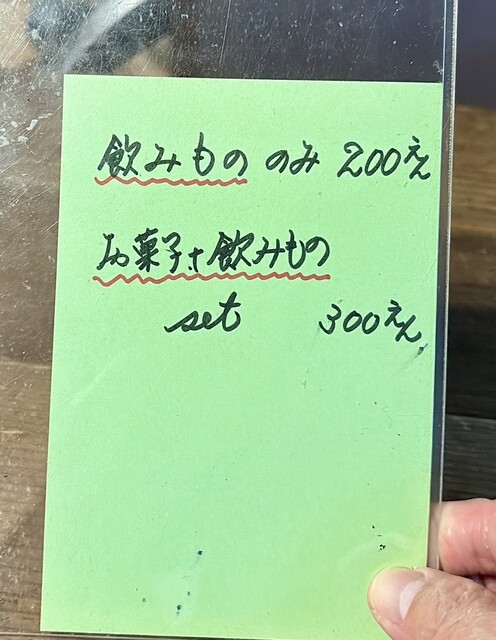 飲みもの のみ 200えん
お菓子+飲みもの
set 300えん